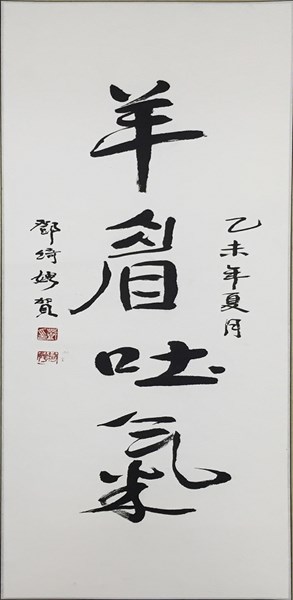 乙未年夏月
羊眉吐氣
鄧綺娉賀